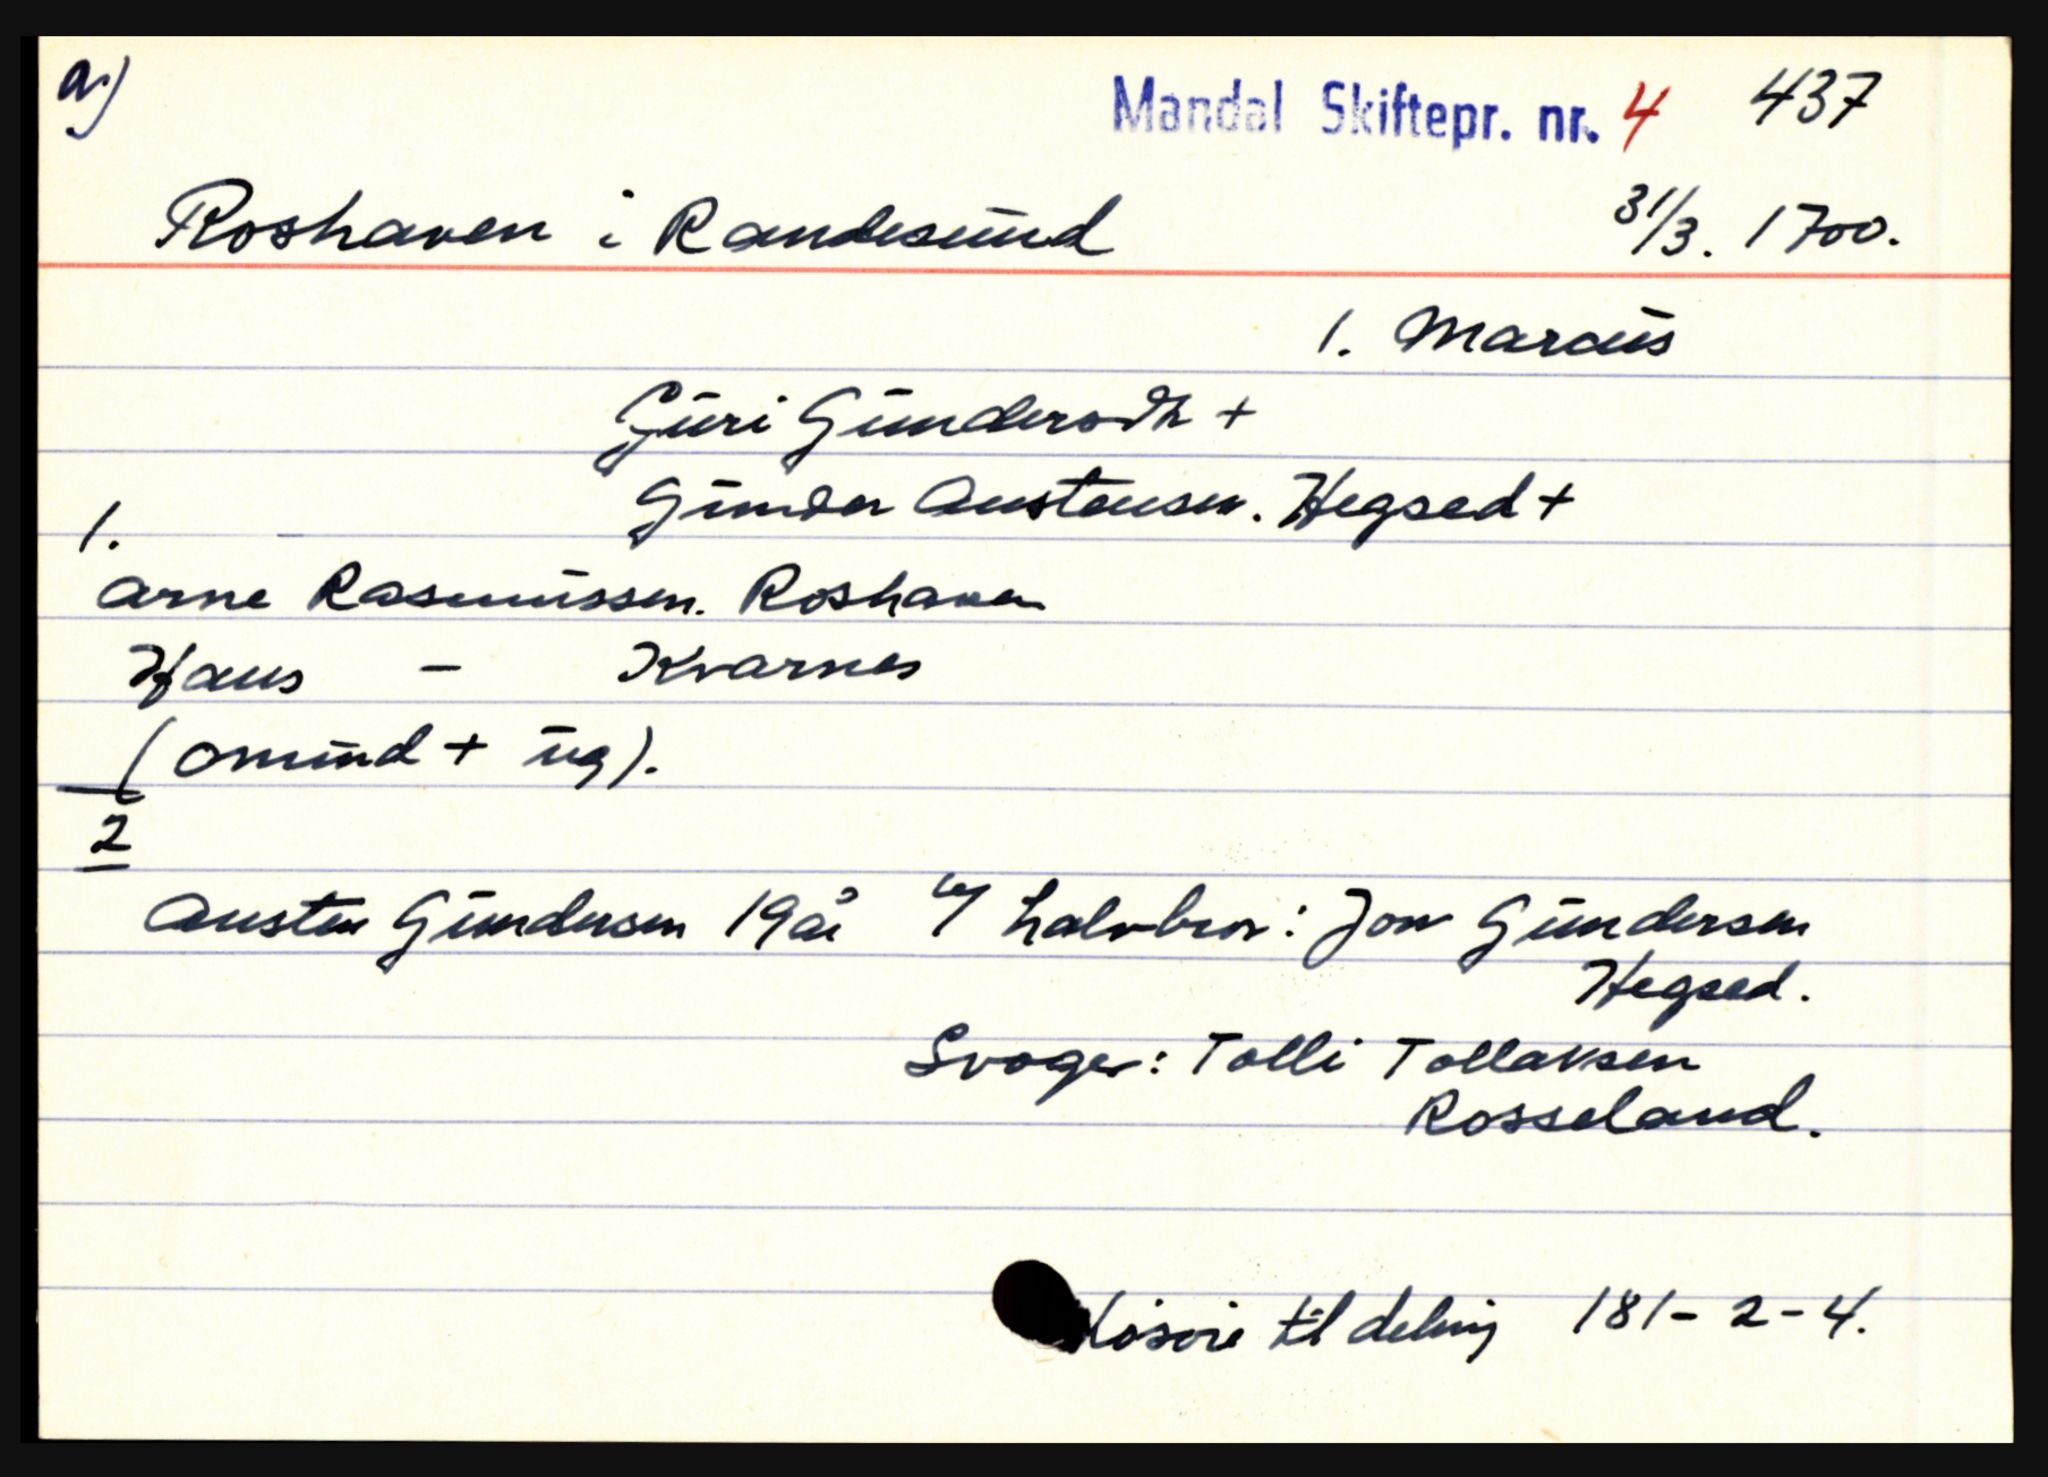 a)
Mandal Skiftepr. nr. 4 437
Roshaven i Randesund 31/3. 1700.
1. Marcus
Guri Gundersdtr +
Gunder Austensen. Hegsed +
1.
Arne Rasmussen. Roshaven
Hans - Kvarnes
(Omund + ug).
2
Austen Gundersen 19 år halvbror: Jon Gundersen
Hegsed.
Svoger: Tolli Tollaksen
Rosseland.
Løsøre til deling 181-2-4.